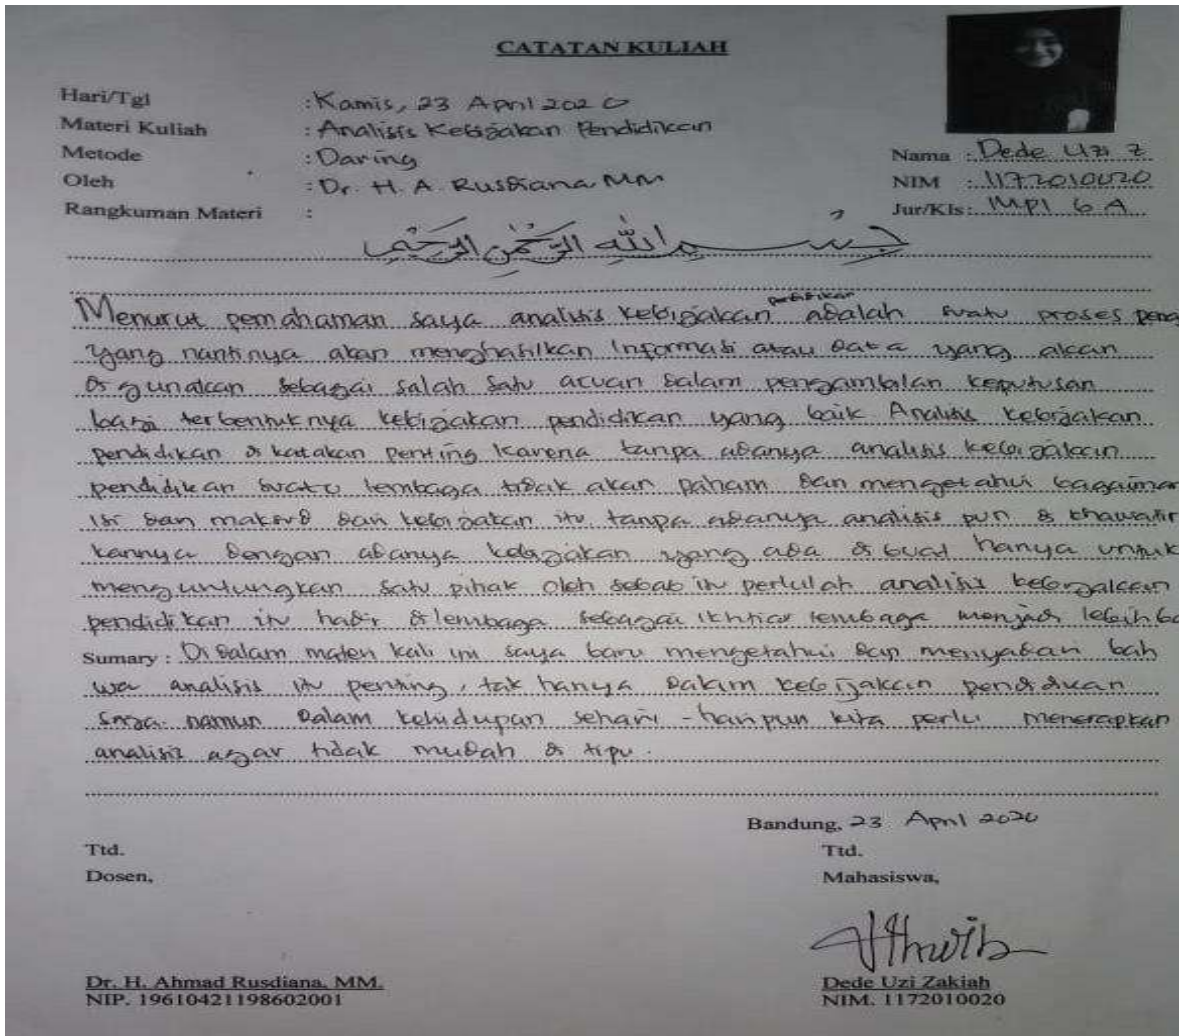 CATATAN KULIAH
Hari/Tgl : Kamis, 23 April 2020
Materi Kuliah : Analisis Kebijakan Pendidikan
Metode : Daring
Oleh : Dr. H. A. Rusdiana MM
Rangkuman Materi :
Nama : Dede Uzi Z
NIM : 1172010020
Jur/Kls : MPI 6 A
بِسْمِ اللهِ الرَّحْمٰنِ الرَّحِيْمِ
Menurut pemahaman saya analisis kebijakan pendidikan adalah suatu proses peng
yang nantinya akan menghasilkan Informasi atau data yang akan
di gunakan sebagai salah satu acuan dalam pengambilan keputusan
bagi terbentuknya kebijakan pendidikan yang baik Analisis kebijakan
pendidikan di katakan penting karena tanpa adanya analisis kebijakan
pendidikan suatu lembaga tidak akan paham dan mengetahui bagaiman
isi dan maksud dari kebijakan itu tanpa adanya analisis pun di khawatir
kannya dengan adanya kebijakan yang ada di buat hanya untuk
menguntungkan satu pihak oleh sebab itu perlulah analisis kebijakan
pendidikan itu hadir di lembaga sebagai ikhtiar lembaga menjadi lebih ba
Sumary : Di dalam materi kali ini saya baru mengetahui dan menyadari bah
wa analisis itu penting, tak hanya dalam kebijakan pendidikan
saja. namun dalam kehidupan sehari-haripun kita perlu menerapkan
analisis agar tidak mudah di tipu.
Bandung, 23 April 2020
Ttd.
Dosen,
Ttd.
Mahasiswa,
Dr. H. Ahmad Rusdiana, MM.
NIP. 19610421198602001
Dede Uzi Zakiah
NIM. 1172010020